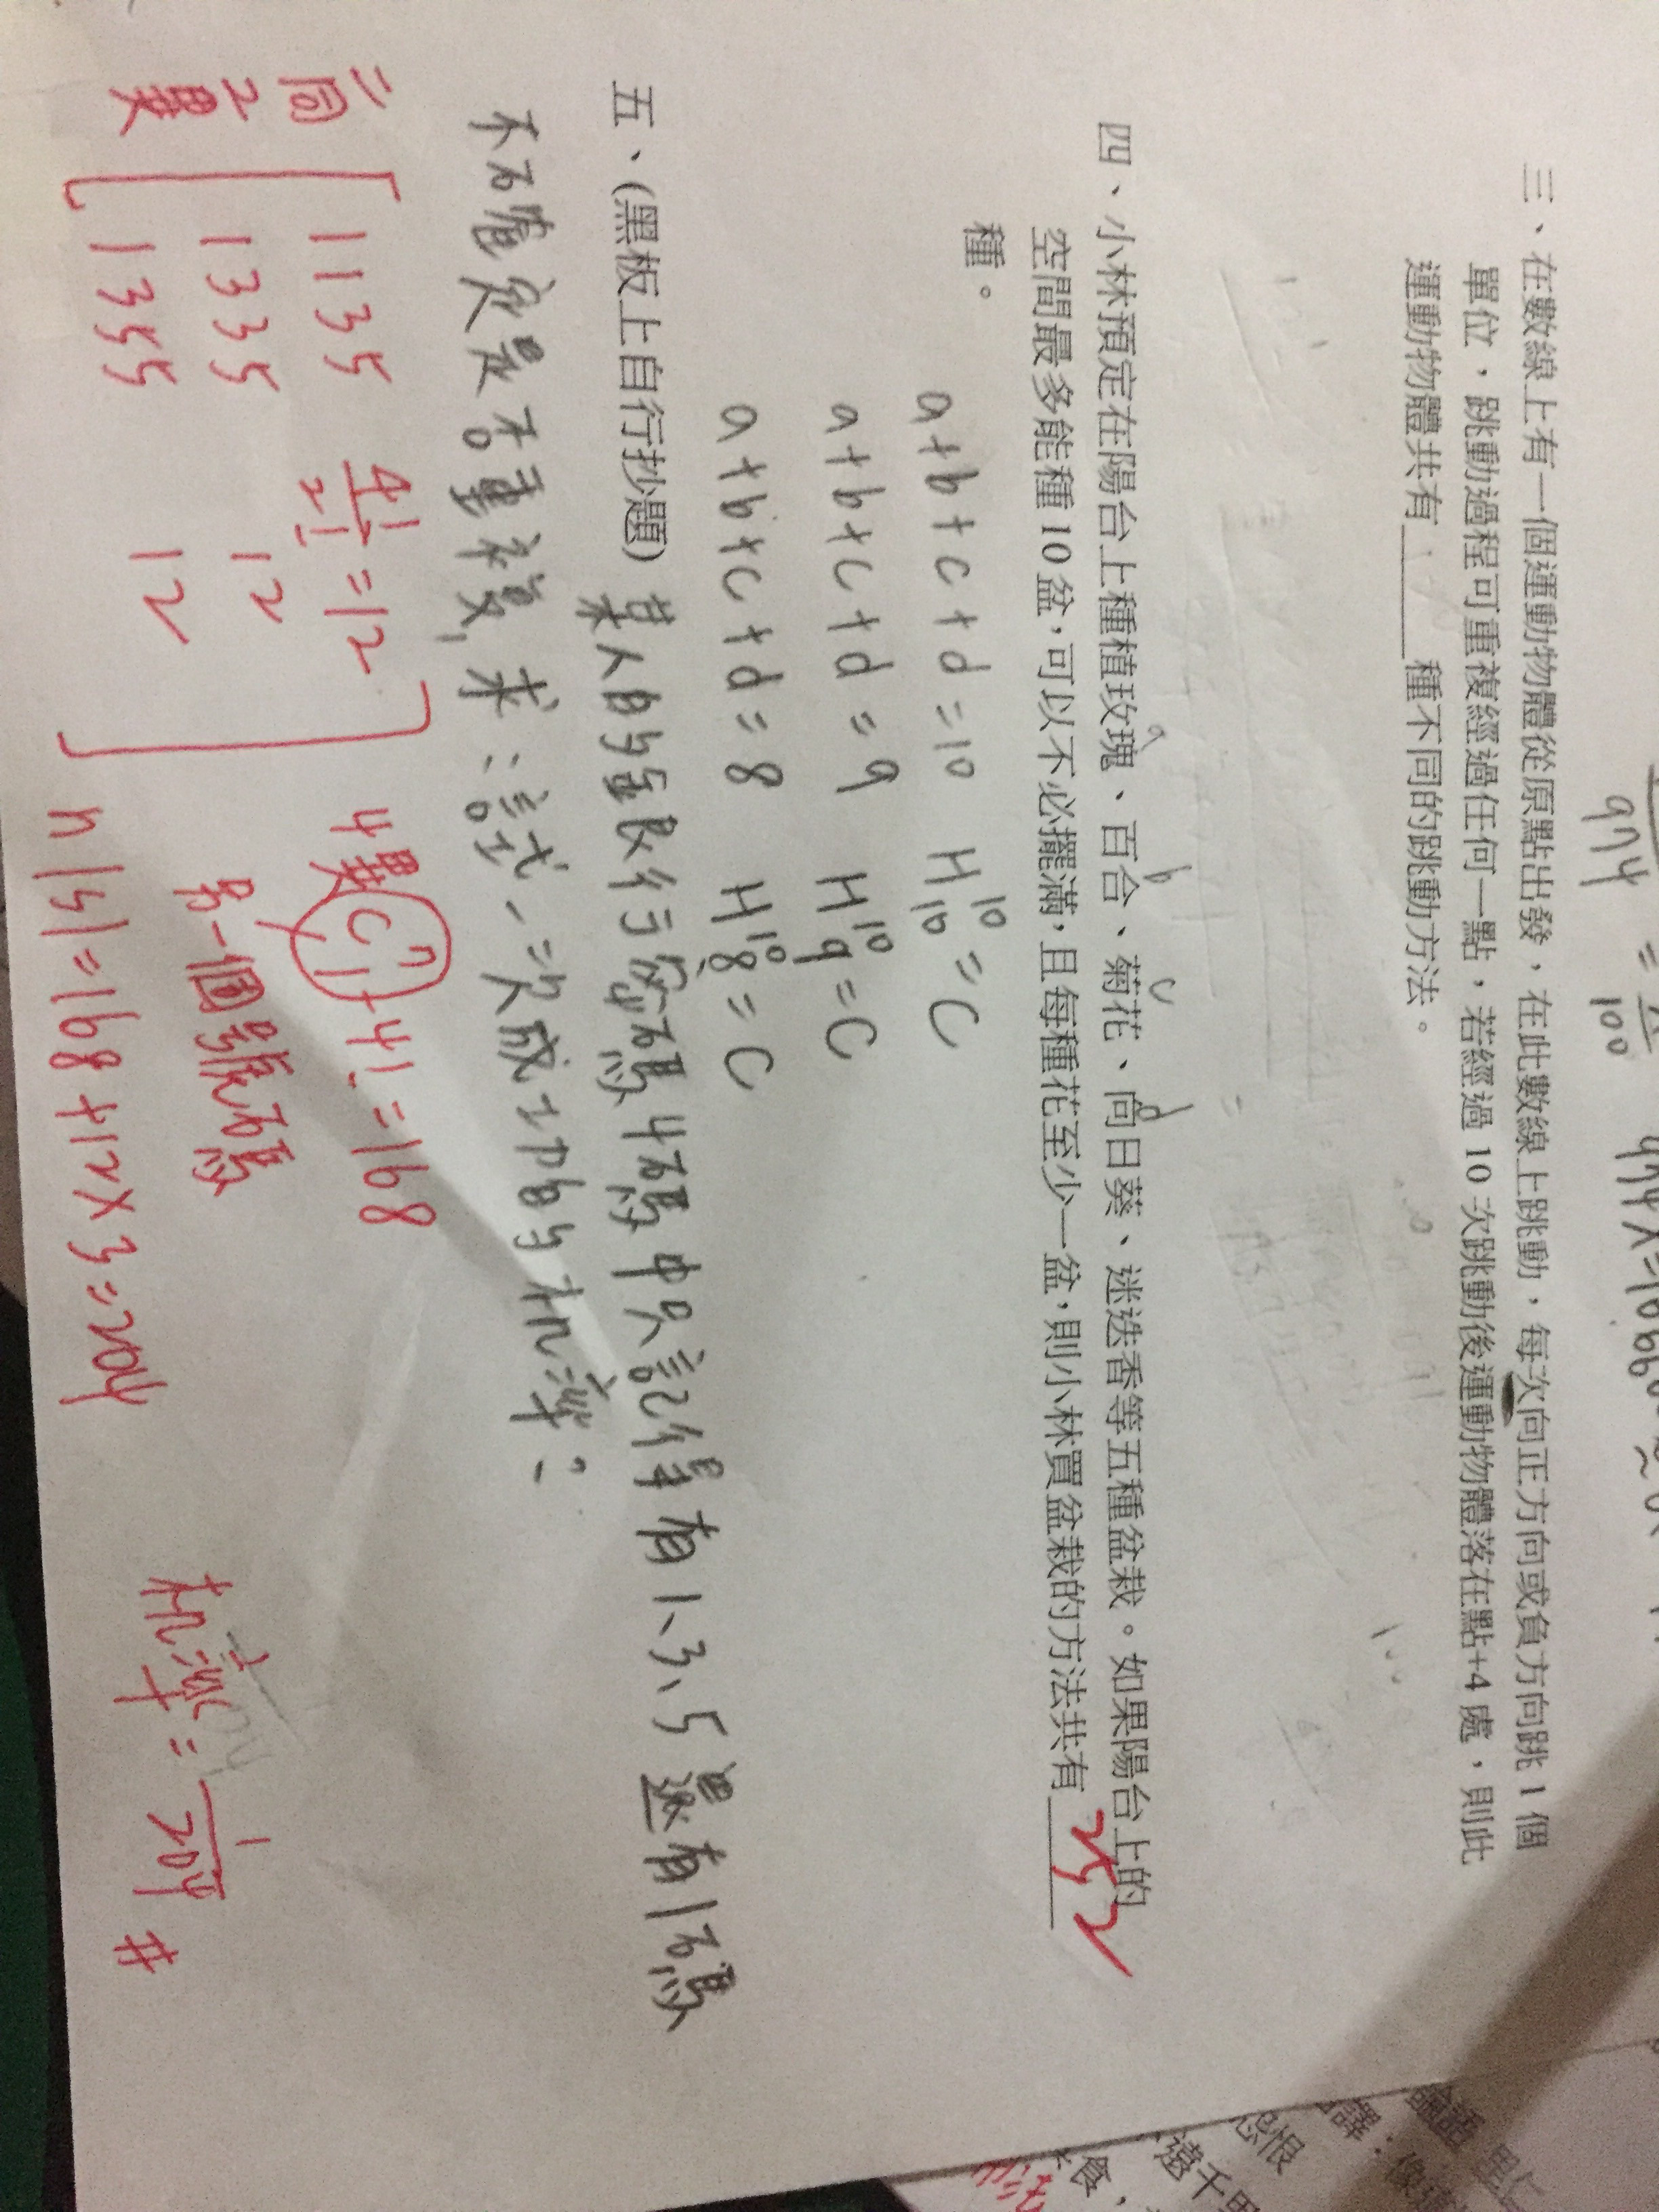 974 = 100
三、在數線上有一個運動物體從原點出發，在此數線上跳動，每次向正方向或負方向跳 1 個
單位，跳動過程可重複經過任何一點，若經過 10 次跳動後運動物體落在點+4 處，則此
運動物體共有______種不同的跳動方法。
a b c d
四、小林預定在陽台上種植玫瑰、百合、菊花、向日葵、迷迭香等五種盆栽。如果陽台上的
空間最多能種 10 盆，可以不必擺滿，且每種花至少一盆，則小林買盆栽的方法共有 252
種。
a+b+c+d=10 H¹⁰₁₀=C
a+b+c+d=9 H¹⁰₉=C
a+b+c+d=8 H¹⁰₈=C
五、(黑板上自行抄題) 某人的銀行密碼4碼中只記得有1、3、5 還有1碼
不確定是否重複，求：試一次成功的机率？
二同2異
1135 4!/2! =12
1335 12
1355 12
4異 C⁷₁·4! =168
另一個號碼
n|s|=168+12×3=204
机率=1/204 #
論語
怨恨
遠千里
食，